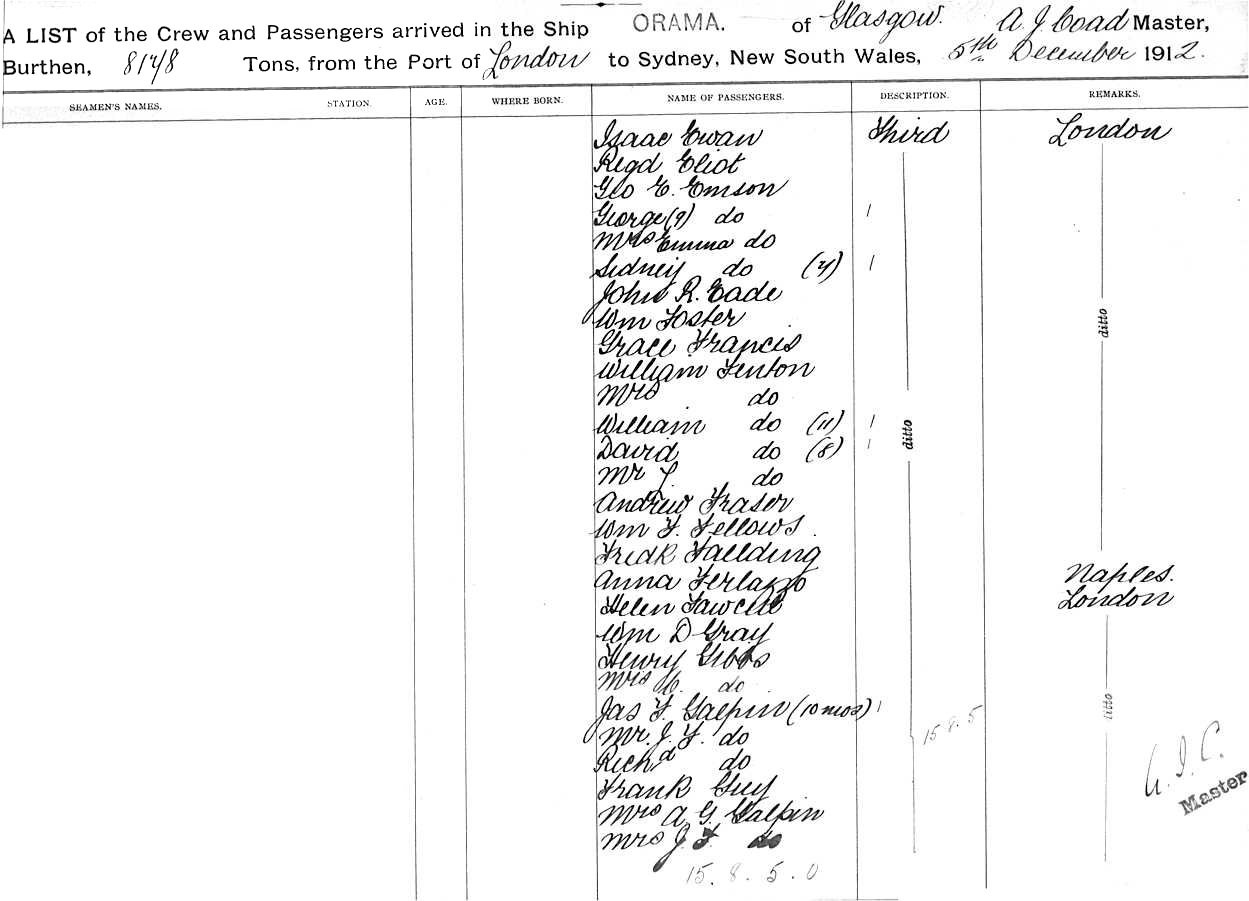 A LIST of the Crew and Passengers arrived in the Ship ORAMA. of Glasgow. A J Coad Master,
Burthen, 8178 Tons, from the Port of London to Sydney, New South Wales, 5th December 1912.
SEAMEN'S NAMES. STATION. AGE. WHERE BORN. NAME OF PASSENGERS. DESCRIPTION. REMARKS.
Isaac Ewan Third London
Regd Eliot
Geo E. Emson
George (9) do 1
Mrs Emma do
Sidney do (7) 1
John R. Eade
Wm Foster ditto
Grace Francis
William Fenton
Mrs do
William do (11) 1
David do (8) 1 ditto
Mr J. do
Andrew Fraser
Wm F. Fellows.
Fredk Faelding
Anna Ferlazzo Naples.
Helen Fawcett London
Wm D Gray
Henry Gibbs
Mrs H. do
Jas F. Galpin (10 mos) 1 ditto
Mr. J. F. do 15.8.5
Richd do
Frank Guy
Mrs A G. Galpin Master
Mrs J F. do
15. 8. 5. 0